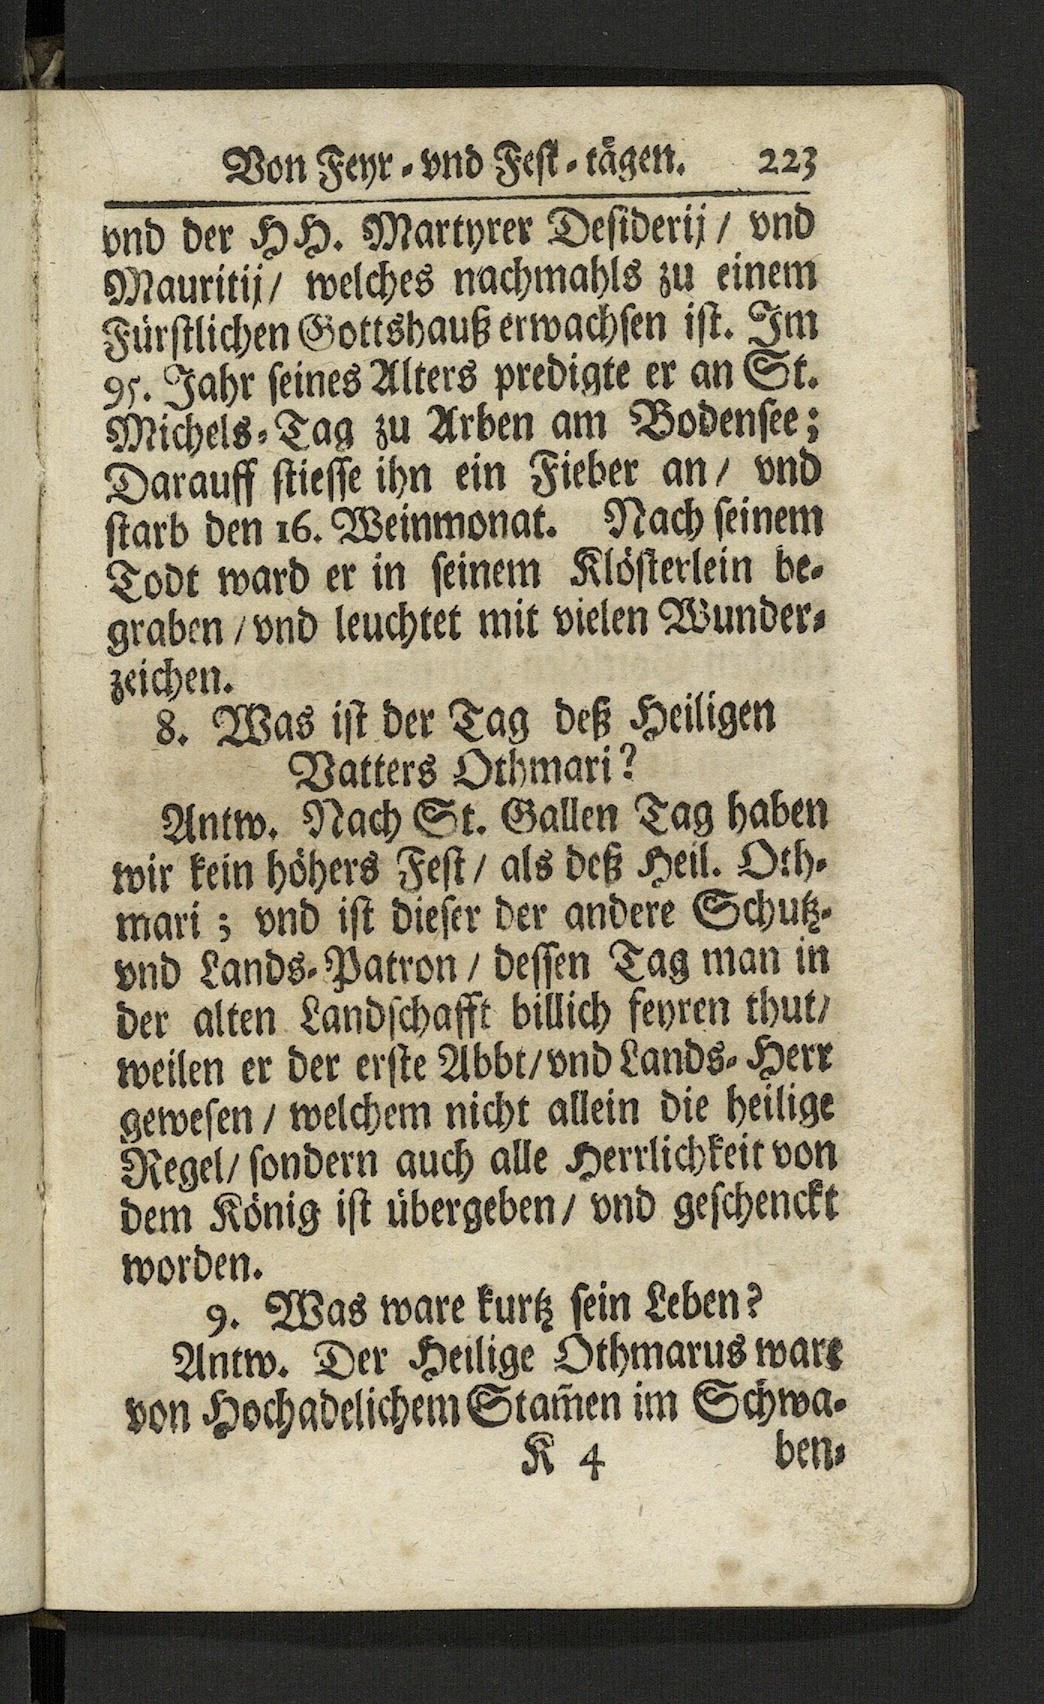 Von Feyr-vnd Fest-tägen. 223
vnd der HH. Martyrer Desiderij / vnd
Mauritij / welches nachmahls zu einem
Fürstlichen Gottshauß erwachsen ist. Im
95. Jahr seines Alters predigte er an St.
Michels-Tag zu Arben am Bodensee;
Darauff stiesse ihn ein Fieber an / vnd
starb den 16. Weinmonat. Nach seinem
Todt ward er in seinem Klösterlein be-
graben / vnd leuchtet mit vielen Wunder-
zeichen.
8. Was ist der Tag deß Heiligen
Vatters Othmari?
Antw. Nach St. Gallen Tag haben
wir kein höhers Fest / als deß Heil. Oth-
mari; vnd ist dieser der andere Schutz-
vnd Lands-Patron / dessen Tag man in
der alten Landschafft billich feyren thut /
weilen er der erste Abbt / vnd Lands-Herr
gewesen / welchem nicht allein die heilige
Regel / sondern auch alle Herrlichkeit von
dem König ist übergeben / vnd geschenckt
worden.
9. Was ware kurtz sein Leben?
Antw. Der Heilige Othmarus ware
von Hochadelichem Stam̄en im Schwa-
K 4 ben-